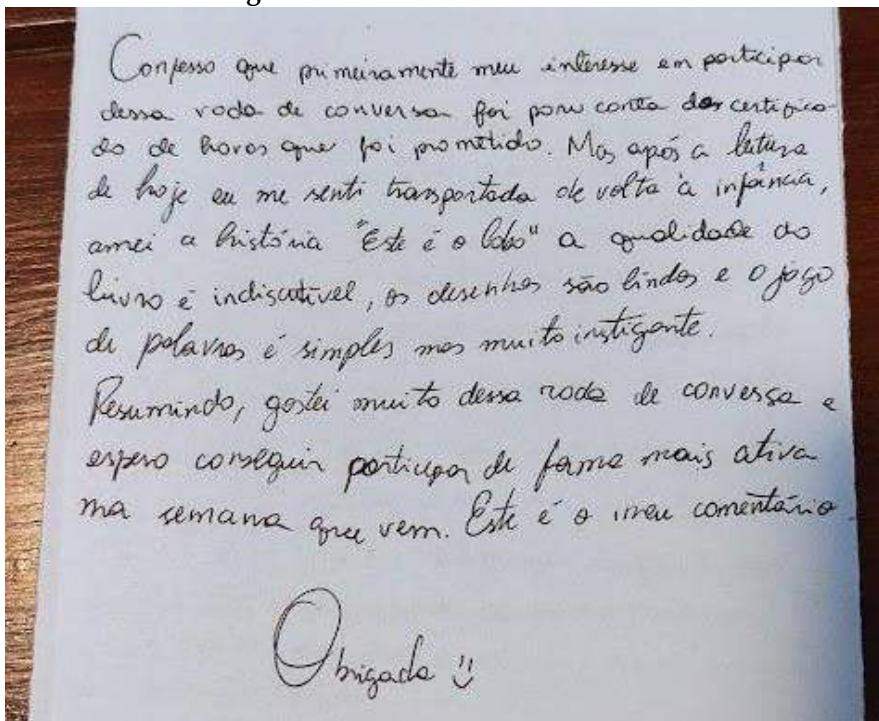 Confesso que primeiramente meu interesse em participar
dessa roda de conversa foi por conta do certifica-
do de horas que foi prometido. Mas após a leitura
de hoje eu me senti transportada de volta à infância,
amei a história "Este é o lobo" a qualidade do
livro é indiscutível, os desenhos são lindos e o jogo
de palavras é simples mas muito instigante.
Resumindo, gostei muito dessa roda de conversa e
espero conseguir participar de forma mais ativa
na semana que vem. Este é o meu comentário
Obrigada :)